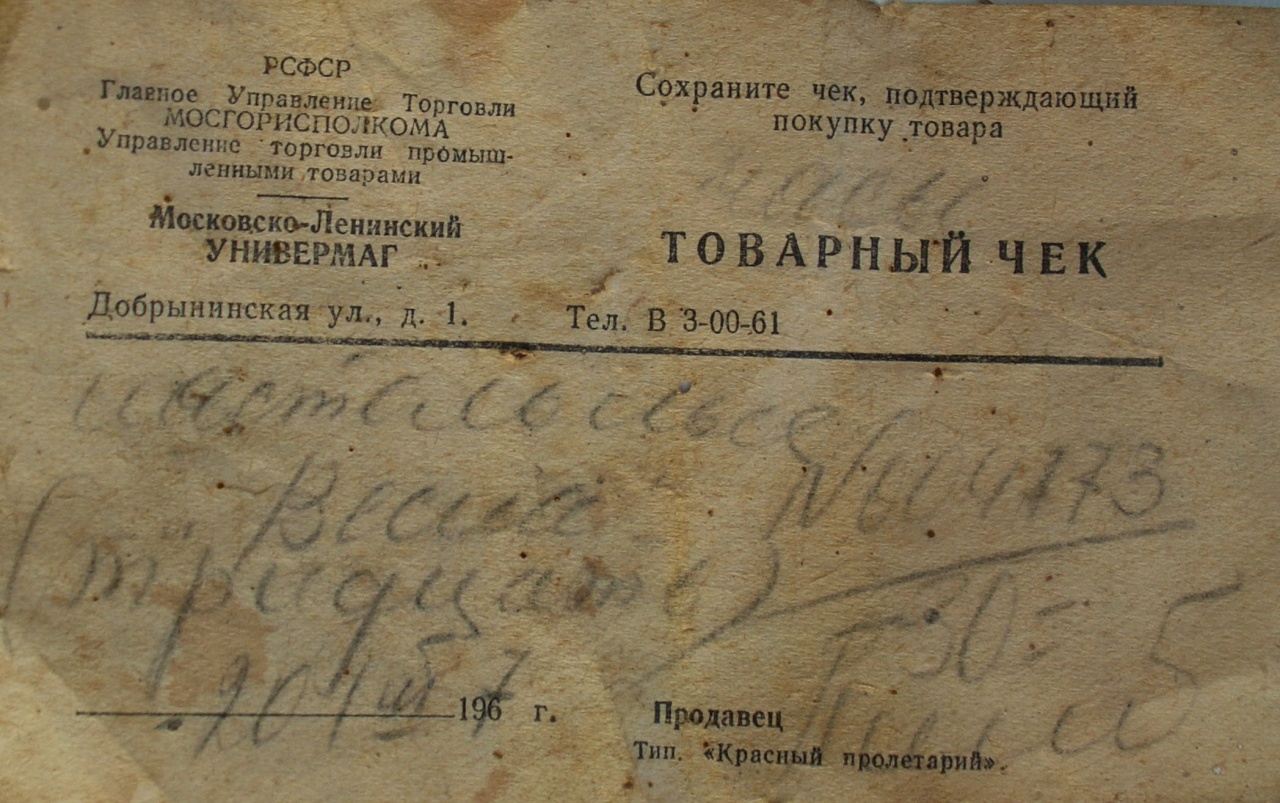 РСФСР
Главное Управление Торговли
МОСГОРИСПОЛКОМА
Управление торговли промыш-
ленными товарами
Московско-Ленинский
УНИВЕРМАГ
Добрынинская ул., д. 1. Тел. В 3-00-61
Сохраните чек, подтверждающий
покупку товара
часы
ТОВАРНЫЙ ЧЕК
настольные
"Весна"
(тридцать) 30=
196 7 г. Продавец
Тип. «Красный пролетарий».